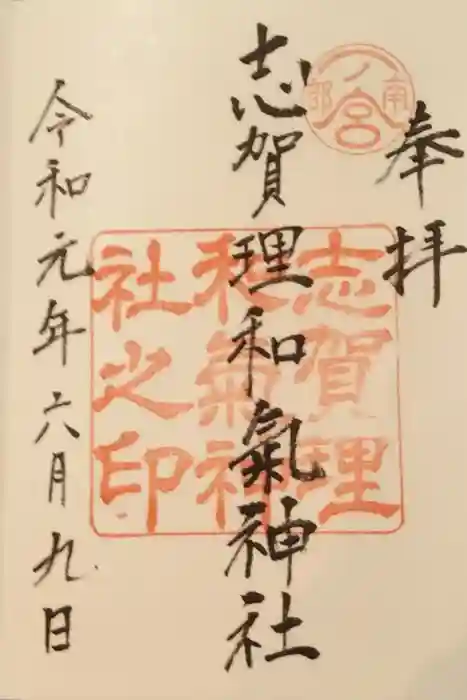 奉拝
志賀理和氣神社
令和元年六月九日
南部
一ノ宮
志賀理
和氣神
社之印